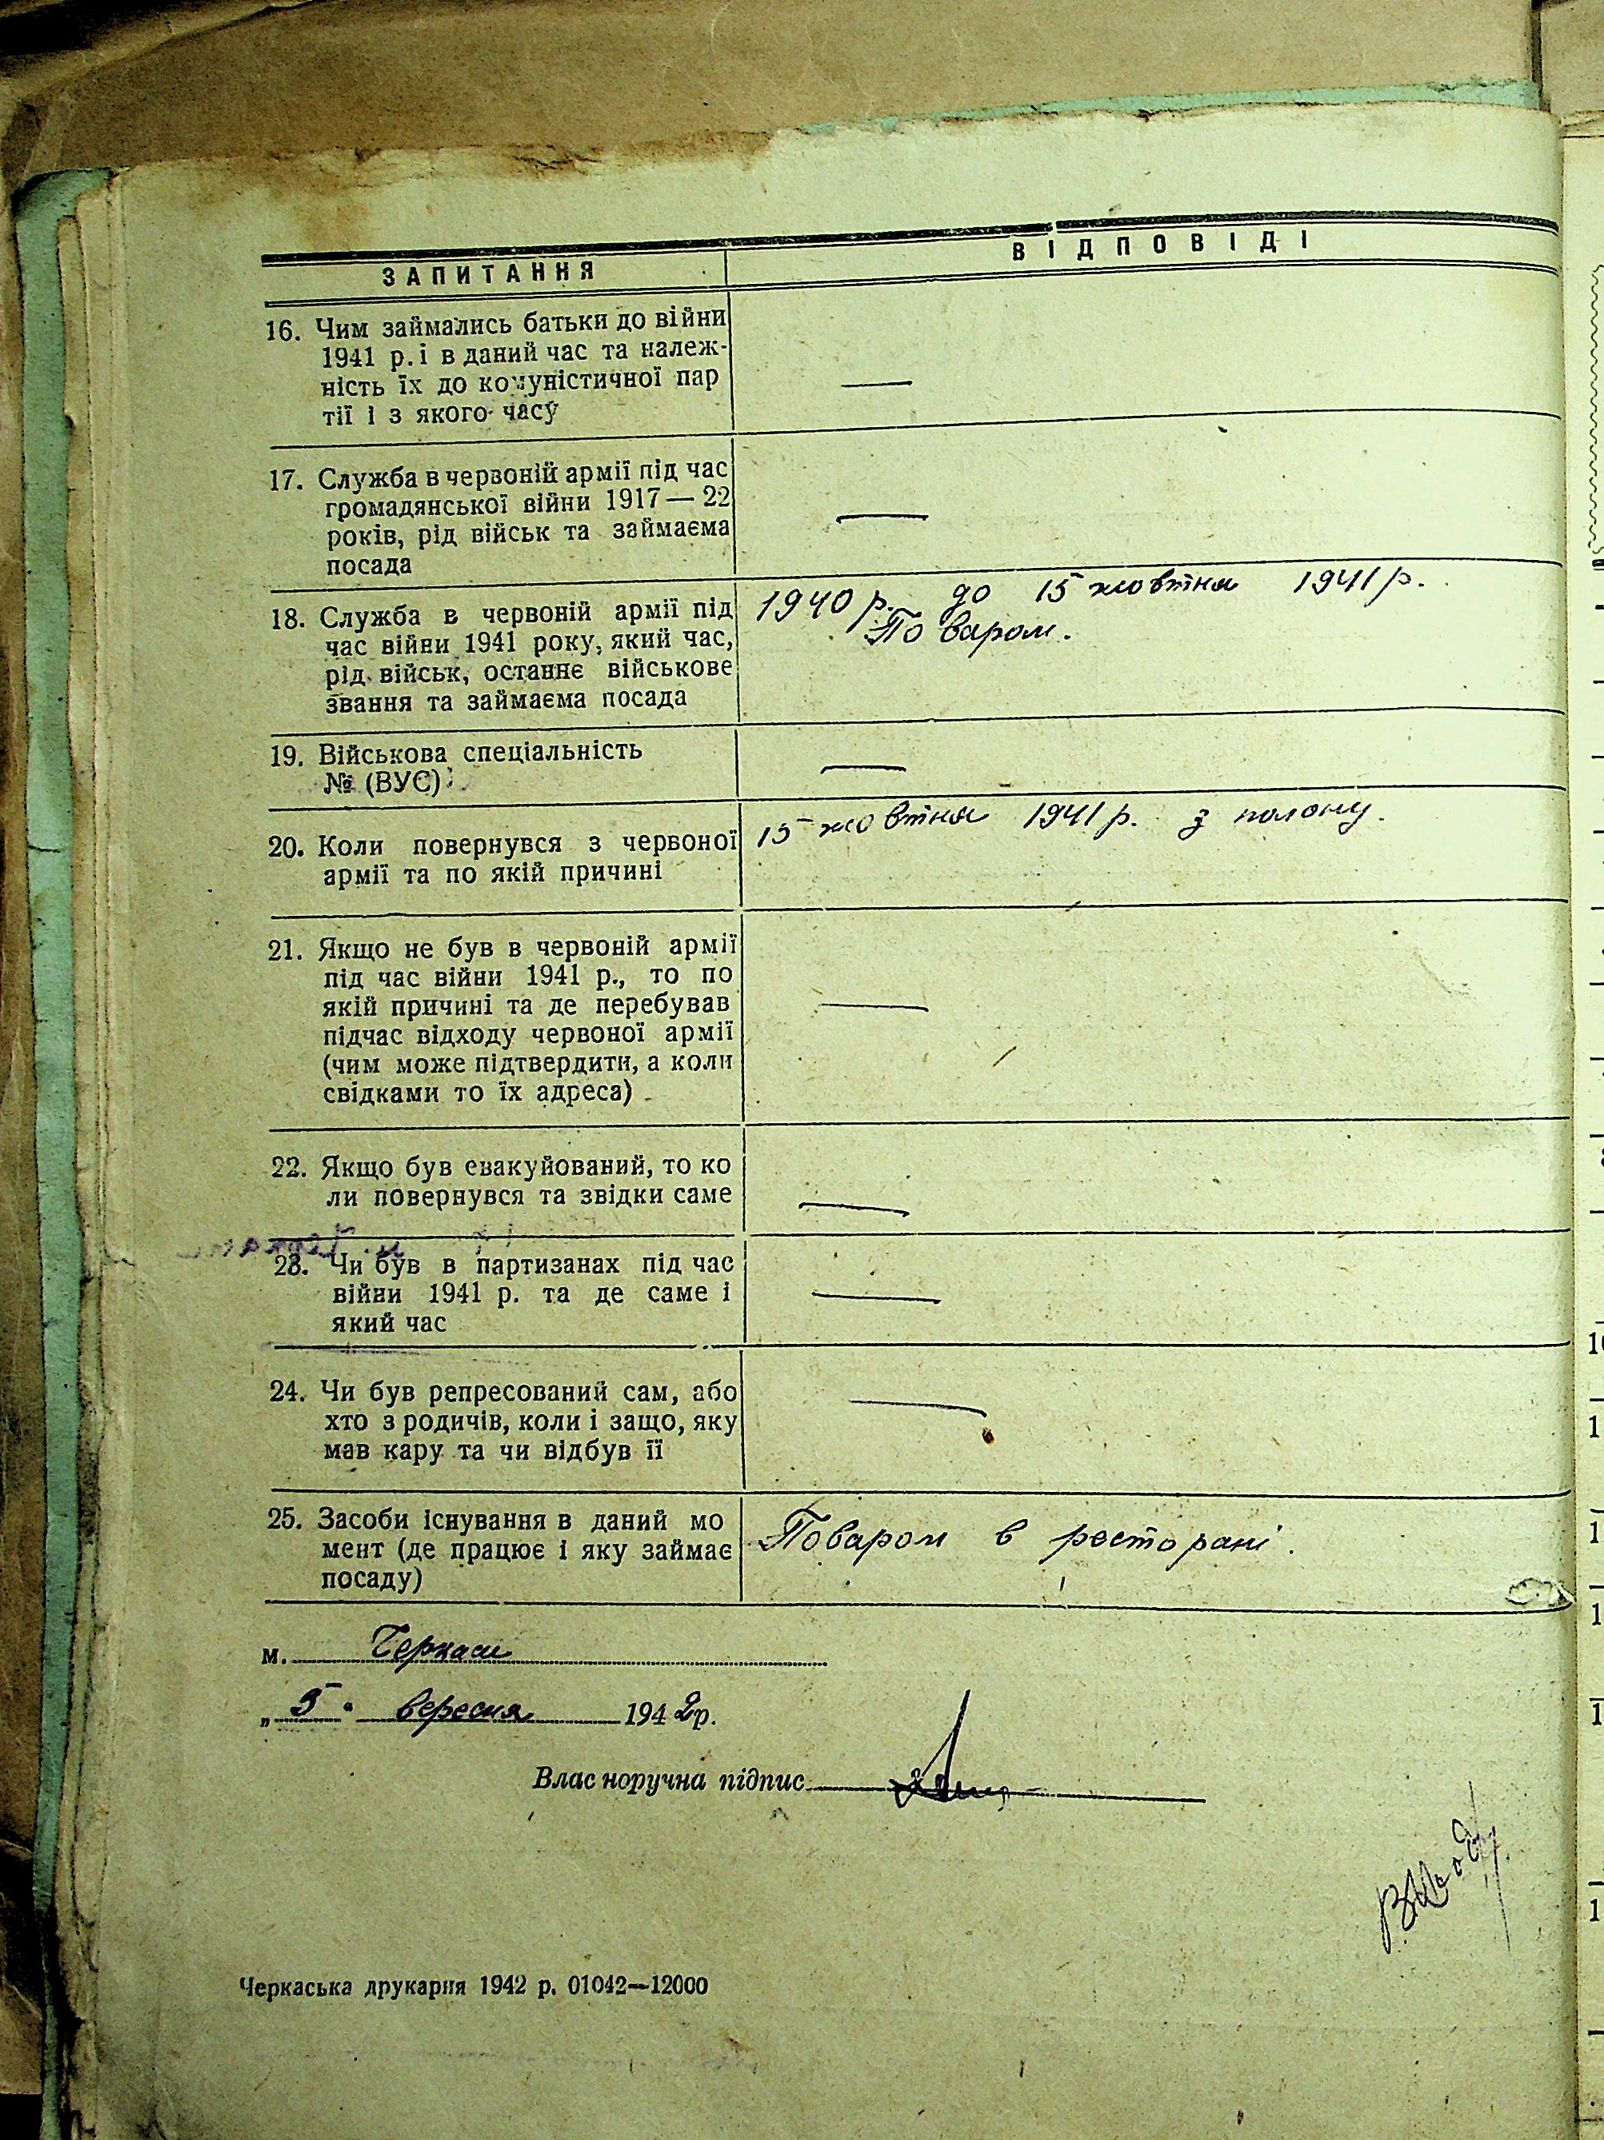 ЗАПИТАННЯ
ВІДПОВІДІ
16. Чим займались батьки до війни
1941 р. і в даний час та належ-
ність їх до комуністичної пар
тії і з якого часу
—
17. Служба в червоній армії під час
громадянської війни 1917 — 22
років, рід військ та займаєма
посада
—
18. Служба в червоній армії під
час війни 1941 року, який час,
рід військ, останнє військове
звання та займаєма посада
1940 р. до 15 жовтня 1941 р.
Поваром.
19. Військова спеціальність
№ (ВУС)
—
20. Коли повернувся з червоної
армії та по якій причині
15 жовтня 1941 р. з полону.
21. Якщо не був в червоній армії
під час війни 1941 р., то по
якій причині та де перебував
підчас відходу червоної армії
(чим може підтвердити, а коли
свідками то їх адреса)
—
22. Якщо був евакуйований, то ко
ли повернувся та звідки саме
—
23. Чи був в партизанах під час
війни 1941 р. та де саме і
який час
—
24. Чи був репресований сам, або
хто з родичів, коли і защо, яку
мав кару та чи відбув її
—
25. Засоби існування в даний мо
мент (де працює і яку займає
посаду)
Поваром в ресторані.
м. Черкаси
„ 5 " вересня 1942 р.
Влас норучна підпис
Черкаська друкарня 1942 р. 01042—12000